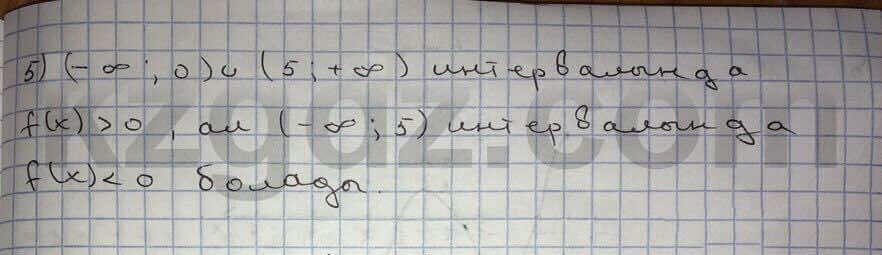 5) (-∞; 0) ∪ (5; +∞) интервалында
f(x) > 0, ал (-∞; 5) интервалында
f(x) < 0 болады.
kzgdz.com